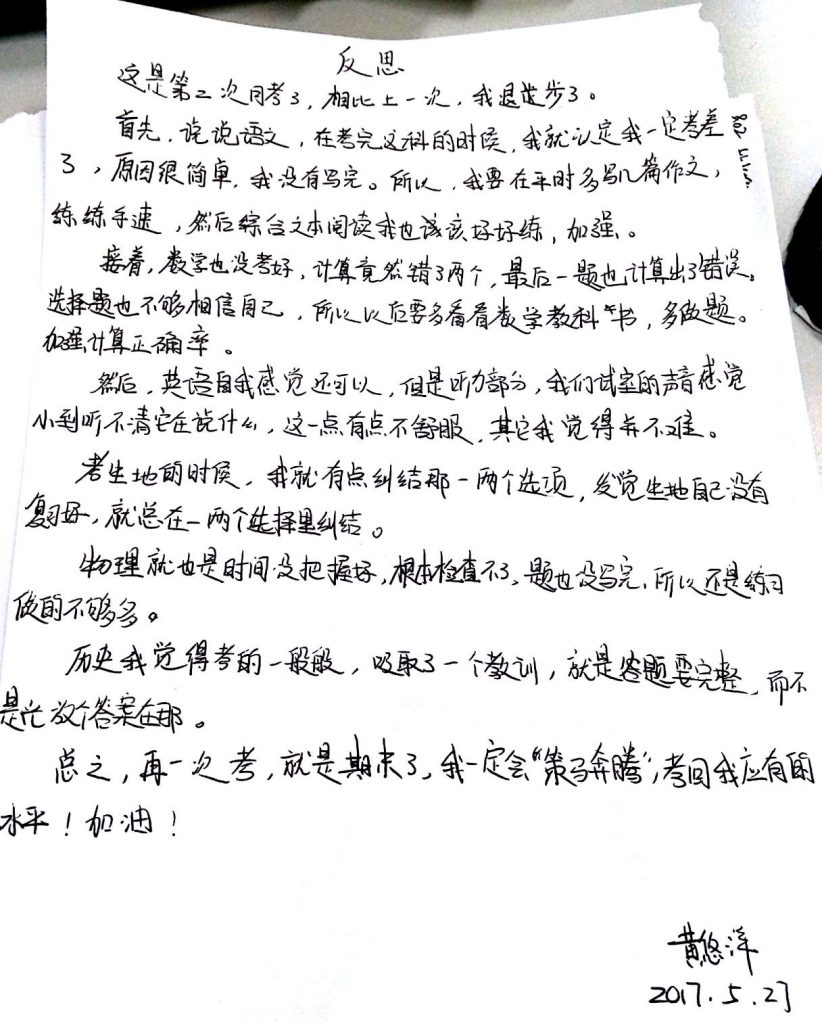 反思
这是第二次月考了，相比上一次，我退步了。
首先，说说语文，在考完这科的时候，我就认定我一定考差
了，原因很简单，我没有写完。所以，我要在平时多写几篇作文，
练练手速，然后综合文本阅读我也该该好好练，加强。
接着，数学也没考好，计算竟然错了两个，最后一题也计算出了错误。
选择题也不够相信自己，所以以后要多看看数学教科书，多做题。
加强计算正确率。
然后，英语自我感觉还可以，但是听力部分，我们试室的声音感觉
小到听不清它在说什么，这一点有点不舒服，其它我觉得并不难。
考生地的时候，我就有点纠结那一两个选项，发觉生地自己没有
复习好，就总在一两个选择里纠结。
物理就也是时间没把握好，根本检查不了，题也没写完，所以还是练习
做的不够多。
历史我觉得考的一般般，吸取了一个教训，就是答题要完整，而不
是光放个答案在那。
总之，再一次考，就是期末了，我一定会“策马奔腾”，考回我应有的
水平！加油！
黄悠洋
2017.5.27